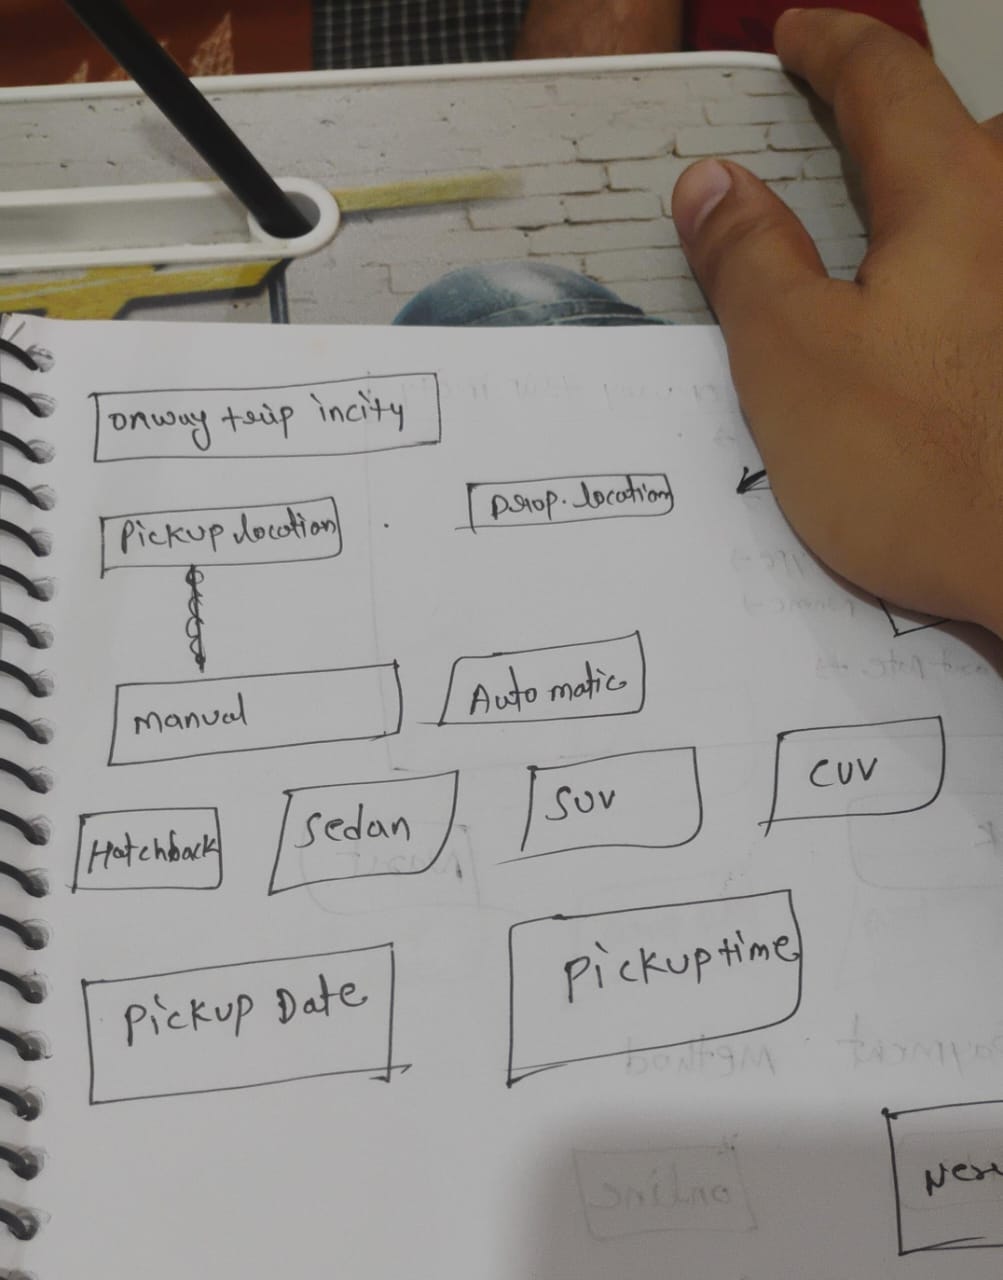 onway trip incity
Pickup location
Drop. location
Manual
Automatic
Hatchback
Sedan
SUV
CUV
Pickup Date
Pickup time
Payment Method
online